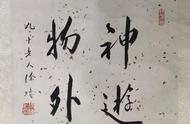 神遊
物外
九十老人徐